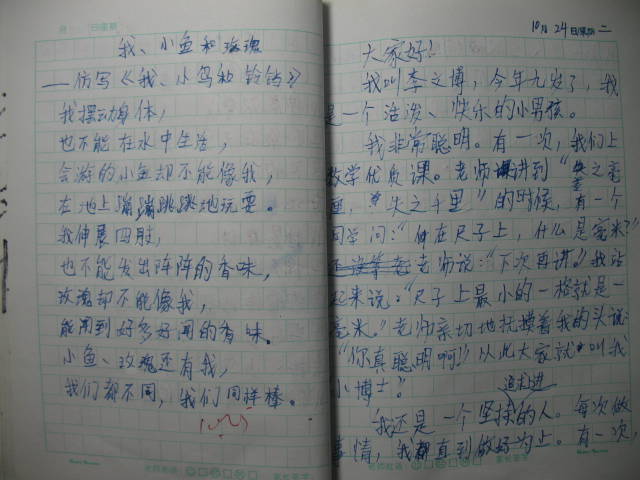 我、小鱼和玫瑰
——仿写《我、小鸟和铃铛》
我摆动身体，
也不能在水中生活，
会游的小鱼却不能像我，
在地上蹦蹦跳跳地玩耍。
我伸展四肢，
也不能发出阵阵的香味，
玫瑰却不能像我，
能闻到好多好闻的香味。
小鱼、玫瑰还有我，
我们都不同，我们同样棒。
10月24日星期二
大家好！
我叫李文博，今年九岁了，我
是一个活泼、快乐的小男孩。
我非常聪明。有一次，我们上
数学优质课。老师讲到“失之毫
厘，失之千里”的时候，有一个
同学问：“何在尺子上，什么是毫米？”
老师说：“下次再讲。”我站
起来说：“尺子上最小的一格就是一
毫米。”老师亲切地抚摸着我的头说：
“你真聪明啊！”从此大家就叫我
小博士？
追求进
我还是一个坚持的人。每次做
事情，我都直到做好为止。有一次，